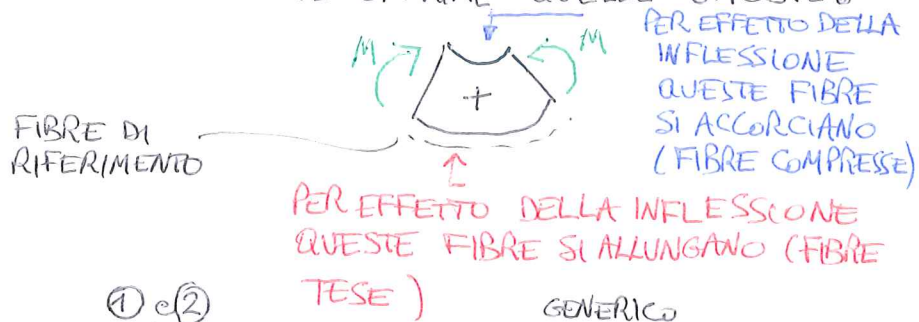 QUELLE OPPOSTE
PER EFFETTO DELLA
INFLESSIONE
QUESTE FIBRE
SI ACCORCIANO
(FIBRE COMPRESSE)
M
M
+
FIBRE DI
RIFERIMENTO
PER EFFETTO DELLA INFLESSIONE
QUESTE FIBRE SI ALLUNGANO (FIBRE
TESE)
① e ②
GENERICO